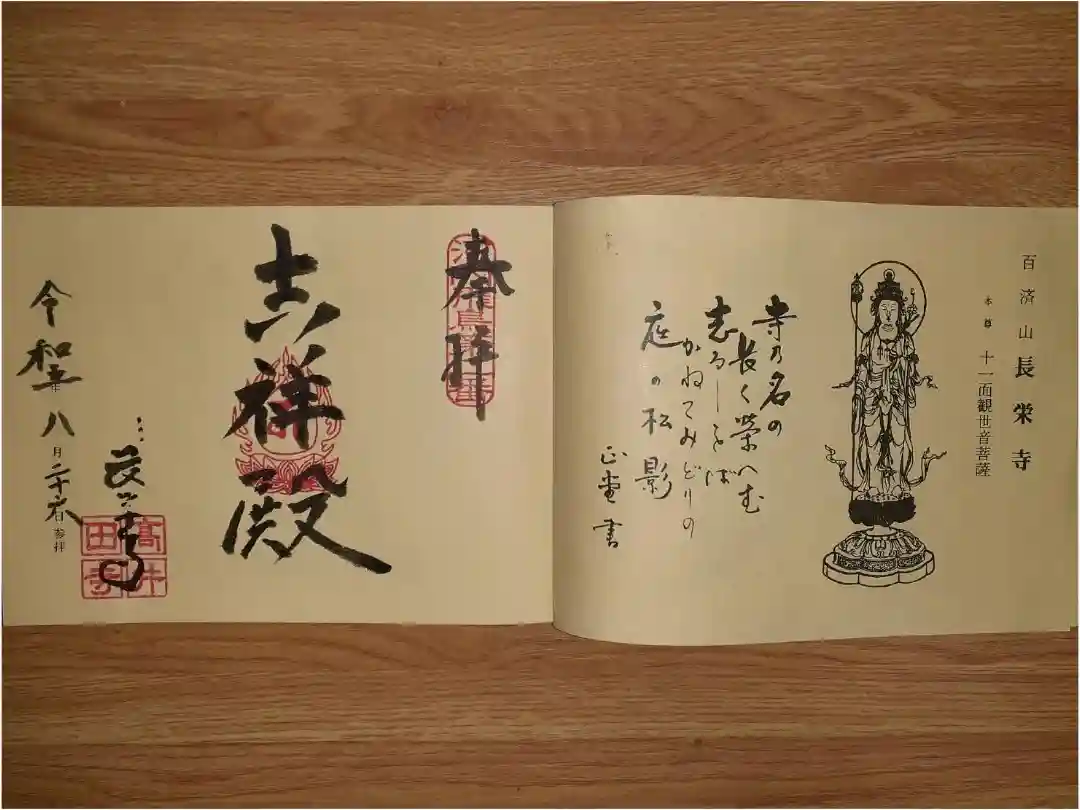 百済山 長栄寺
本尊 十一面観世音菩薩
寺乃名の
長く榮へむ
志るしをば
かねてみどりの
庭の松影
書
奉拝
吉祥殿
高井
田寺
令和五年八月二十日参拝